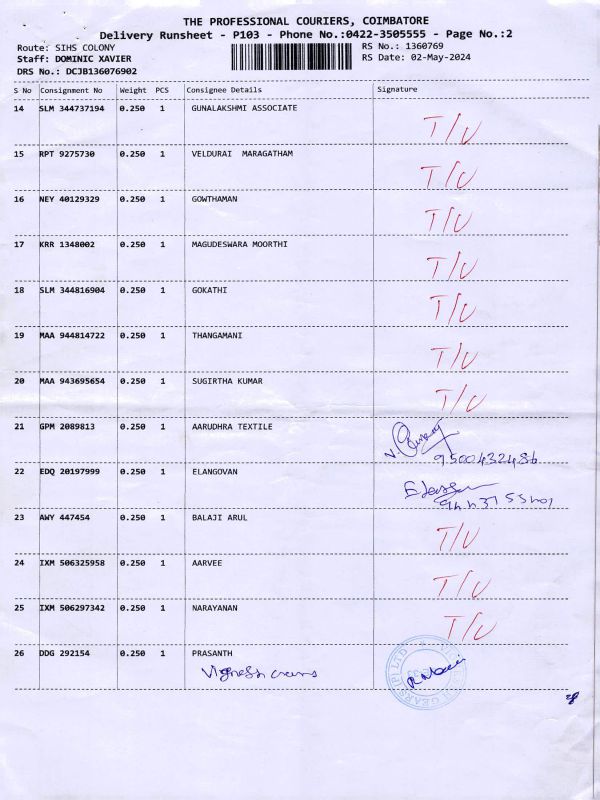 THE PROFESSIONAL COURIERS, COIMBATORE
Delivery Runsheet - P103 - Phone No.:0422-3505555 - Page No.:2
Route: SIHS COLONY
RS No.: 1360769
Staff: DOMINIC XAVIER
RS Date: 02-May-2024
DRS No.: DCJB136076902
S No Consignment No Weight PCS Consignee Details Signature
14 SLM 344737194 0.250 1 GUNALAKSHMI ASSOCIATE T/U
15 RPT 9275730 0.250 1 VELDURAI MARAGATHAM T/U
16 NEY 40129329 0.250 1 GOWTHAMAN T/U
17 KRR 1348002 0.250 1 MAGUDESWARA MOORTHI T/U
18 SLM 344816904 0.250 1 GOKATHI T/U
19 MAA 944814722 0.250 1 THANGAMANI T/U
20 MAA 943695654 0.250 1 SUGIRTHA KUMAR T/U
21 GPM 2089813 0.250 1 AARUDHRA TEXTILE
9500432486
22 EDQ 20197999 0.250 1 ELANGOVAN
23 AWY 447454 0.250 1 BALAJI ARUL T/U
24 IXM 506325958 0.250 1 AARVEE T/U
25 IXM 506297342 0.250 1 NARAYANAN T/U
26 DDG 292154 0.250 1 PRASANTH